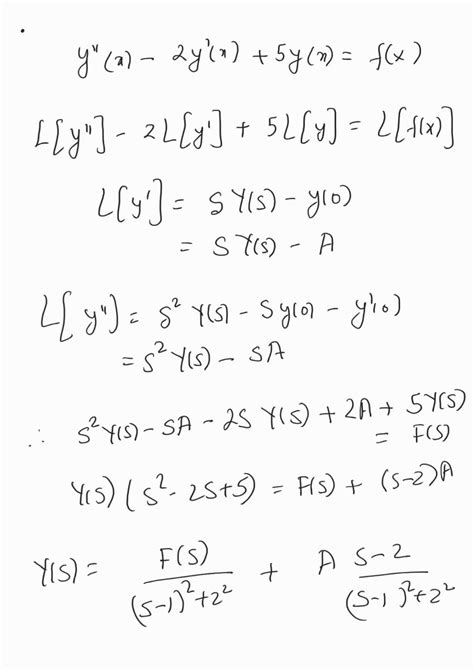 y''(x) - 2y'(x) + 5y(x) = f(x)
L[y''] - 2L[y'] + 5L[y] = L[f(x)]
L[y'] = SY(s) - y(0)
= SY(s) - A
L[y''] = s² Y(s) - Sy(0) - y'(0)
= s² Y(s) - SA
∴ s² Y(s) - SA - 2S Y(s) + 2A + 5Y(s)
= F(s)
Y(s) (s² - 2s + 5) = F(s) + (s-2)A
Y(s) = F(s) / ((s-1)² + 2²) + A (s-2) / ((s-1)² + 2²)